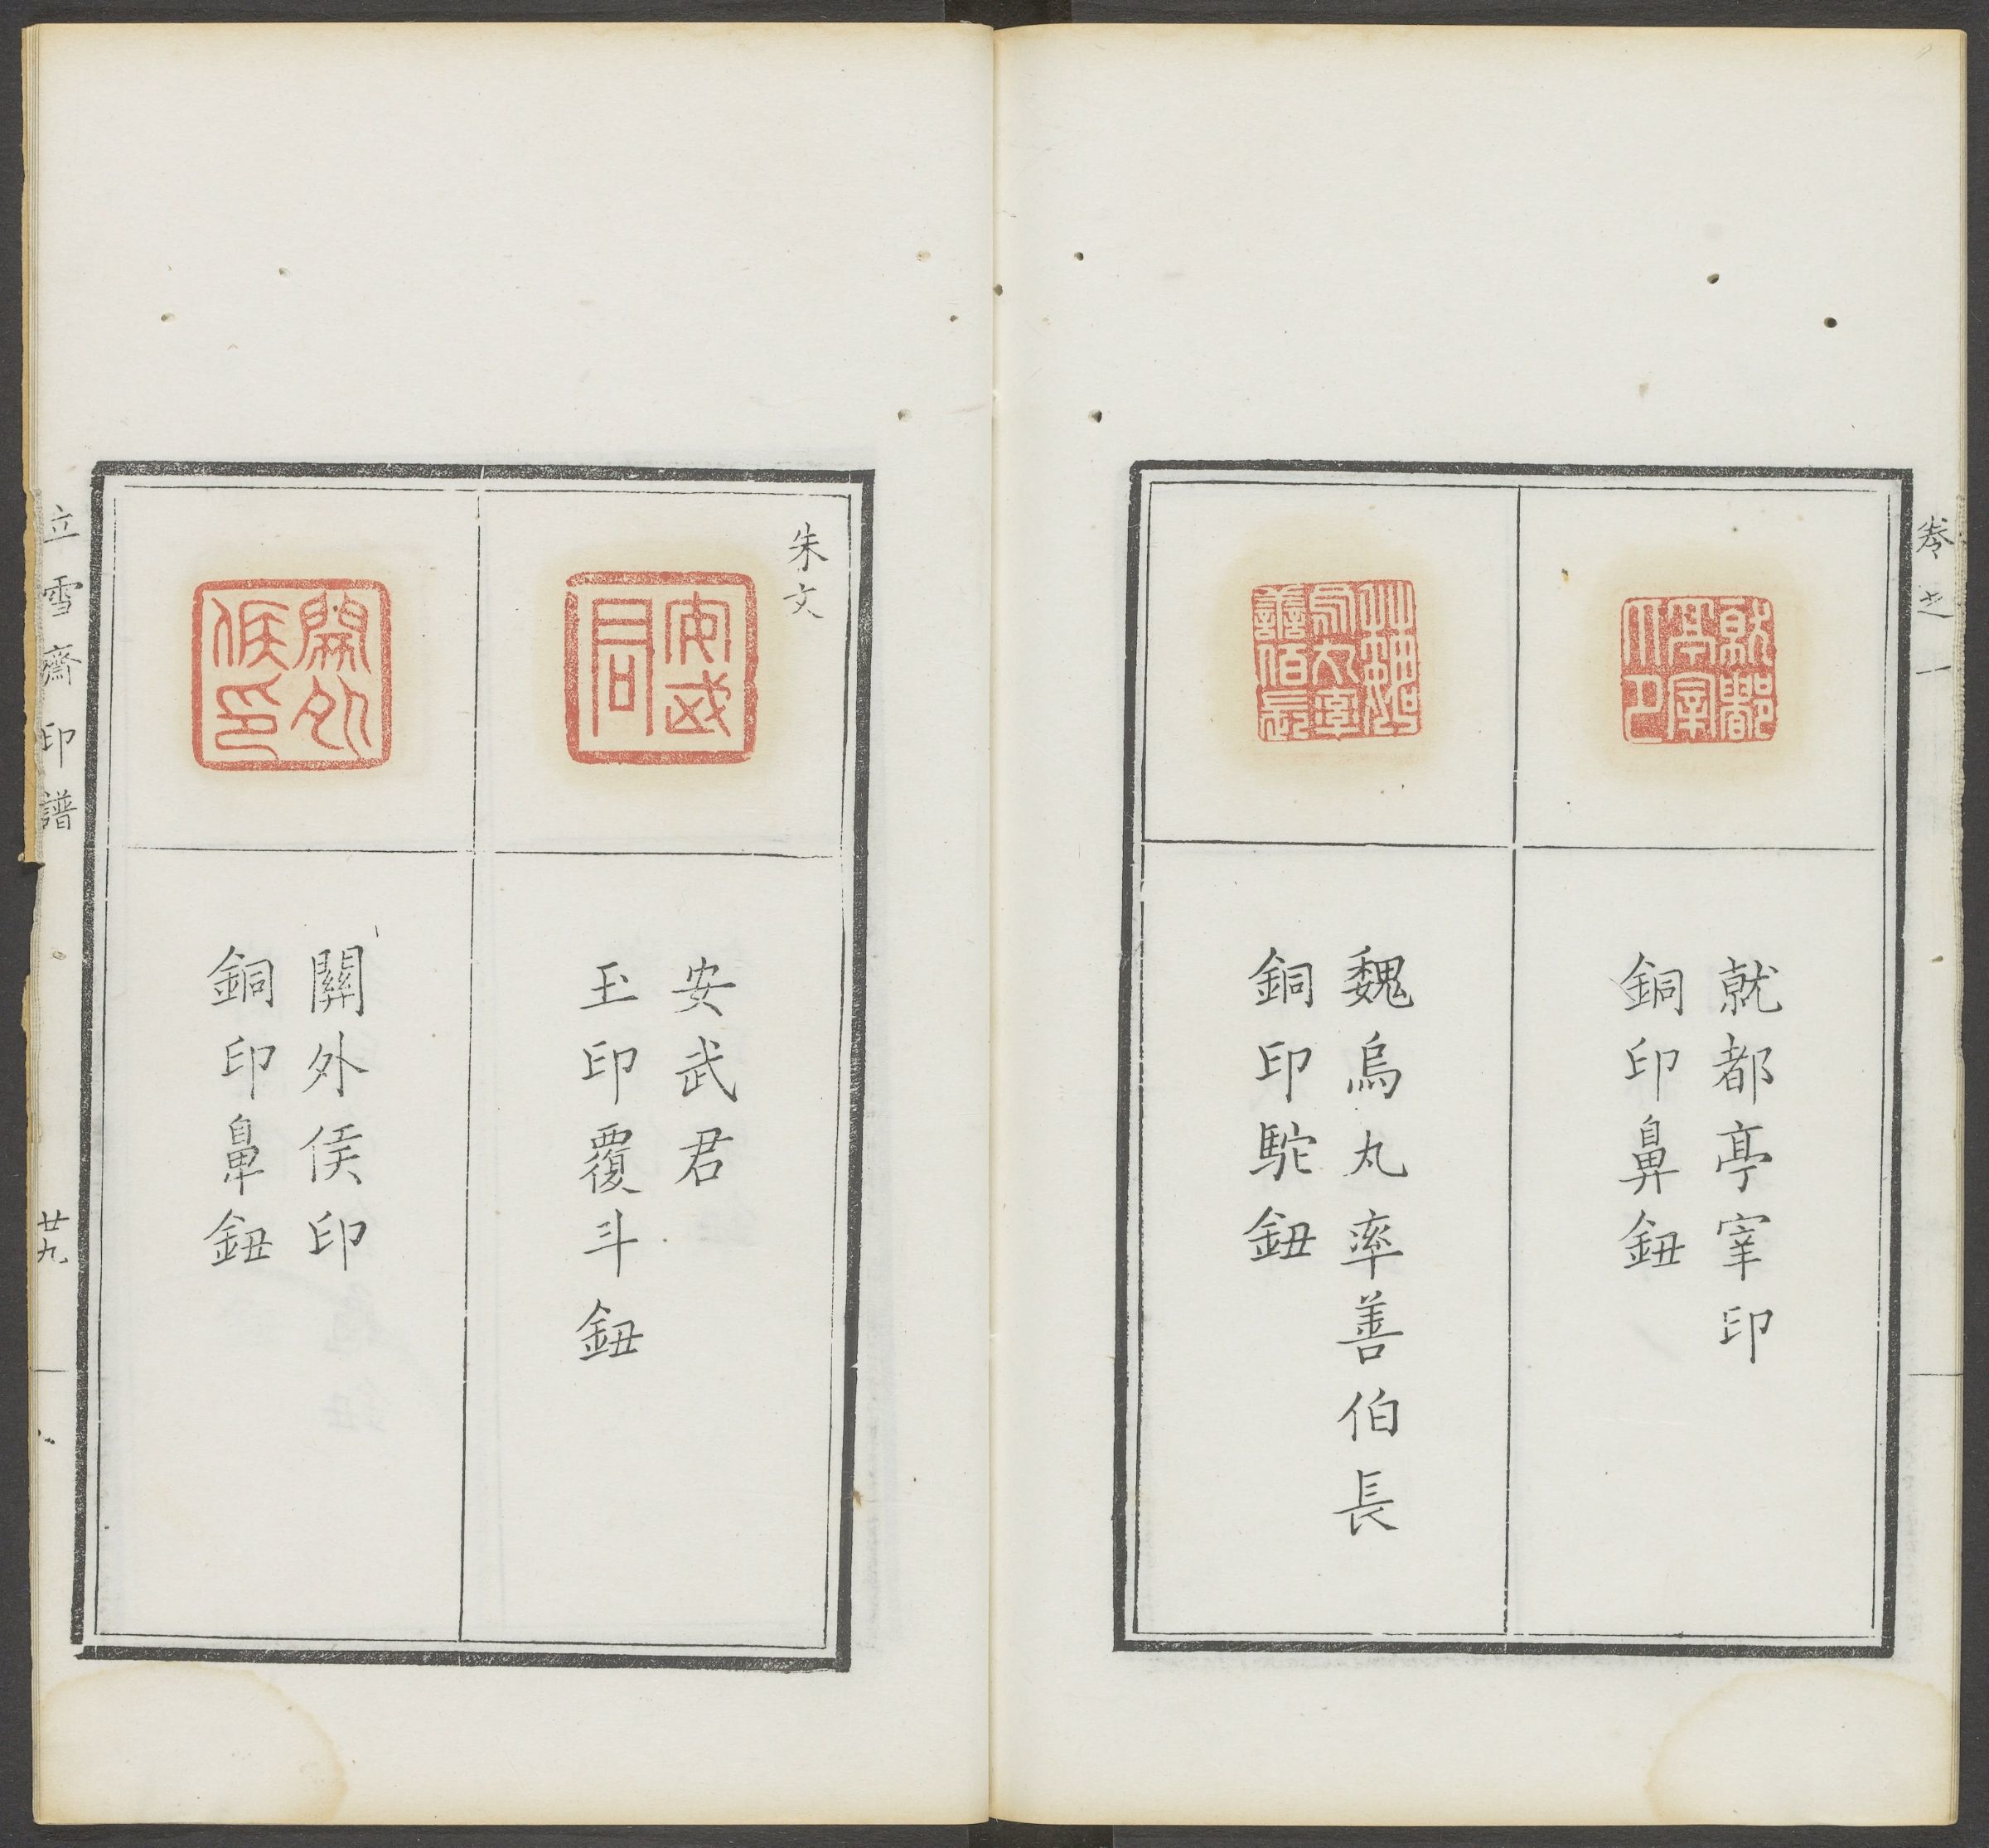 卷之一
就都亭宰印
銅印鼻鈕
魏烏丸率善伯長
銅印駝鈕
朱文
安武君
玉印覆斗鈕
關外侯印
銅印鼻鈕
立雪齋印譜
廿九